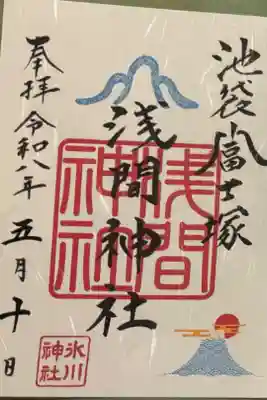 池袋富士塚
浅間神社
奉拝 令和八年 五月十日
浅間神社
氷川神社